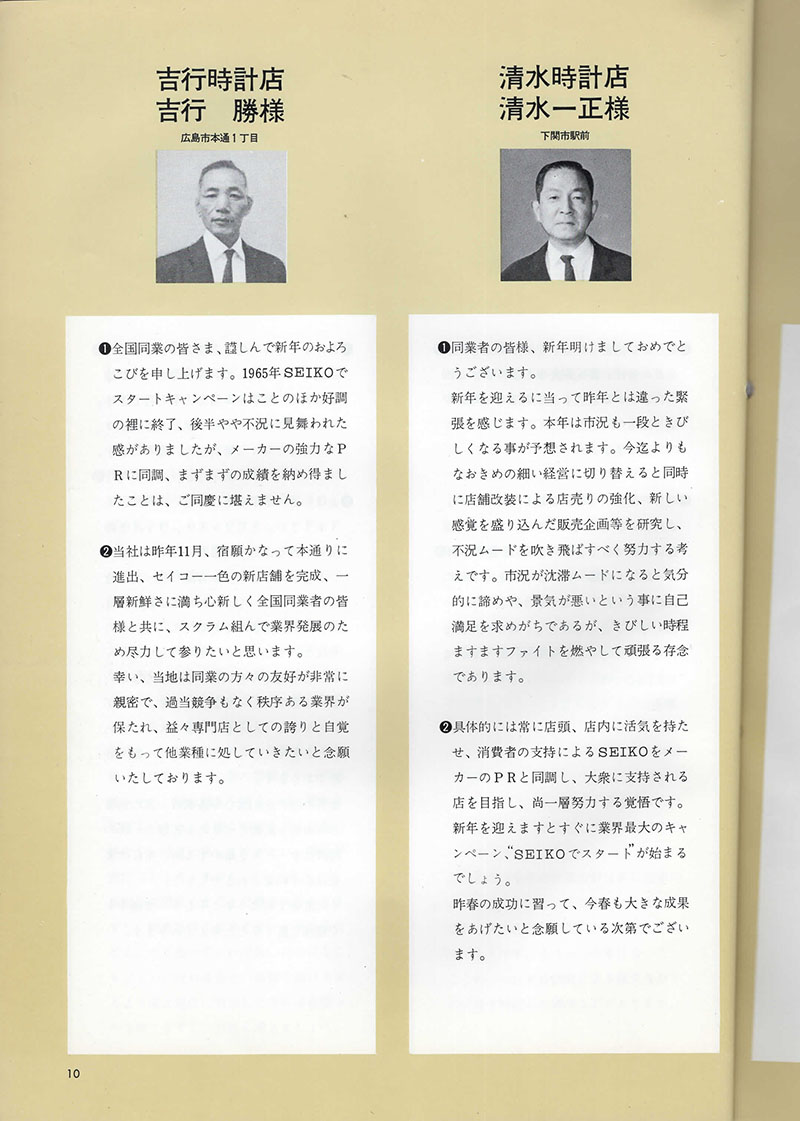 吉行時計店
吉行　勝様
広島市本通1丁目
❶全国同業の皆さま、謹しんで新年のおよろ
こびを申し上げます。1965年SEIKOで
スタートキャンペーンはことのほか好調
の裡に終了、後半やや不況に見舞われた
感がありましたが、メーカーの強力なP
Rに同調、まずまずの成績を納め得まし
たことは、ご同慶に堪えません。
❷当社は昨年11月、宿願かなって本通りに
進出、セイコー一色の新店舗を完成、一
層新鮮さに満ち心新しく全国同業者の皆
様と共に、スクラム組んで業界発展のた
め尽力して参りたいと思います。
幸い、当地は同業の方々の友好が非常に
親密で、過当競争もなく秩序ある業界が
保たれ、益々専門店としての誇りと自覚
をもって他業種に処していきたいと念願
いたしております。
清水時計店
清水一正様
下関市駅前
❶同業者の皆様、新年明けましておめでと
うございます。
新年を迎えるに当って昨年とは違った緊
張を感じます。本年は市況も一段ときび
しくなる事が予想されます。今迄よりも
なおきめの細い経営に切り替えると同時
に店舗改装による店売りの強化、新しい
感覚を盛り込んだ販売企画等を研究し、
不況ムードを吹き飛ばすべく努力する考
えです。市況が沈滞ムードになると気分
的に諦めや、景気が悪いという事に自己
満足を求めがちであるが、きびしい時程
ますますファイトを燃やして頑張る存念
であります。
❷具体的には常に店頭、店内に活気を持た
せ、消費者の支持によるSEIKOをメー
カーのPRと同調し、大衆に支持される
店を目指し、尚一層努力する覚悟です。
新年を迎えますとすぐに業界最大のキャ
ンペーン、“SEIKOでスタート”が始まる
でしょう。
昨春の成功に習って、今春も大きな成果
をあげたいと念願している次第でござい
ます。
10